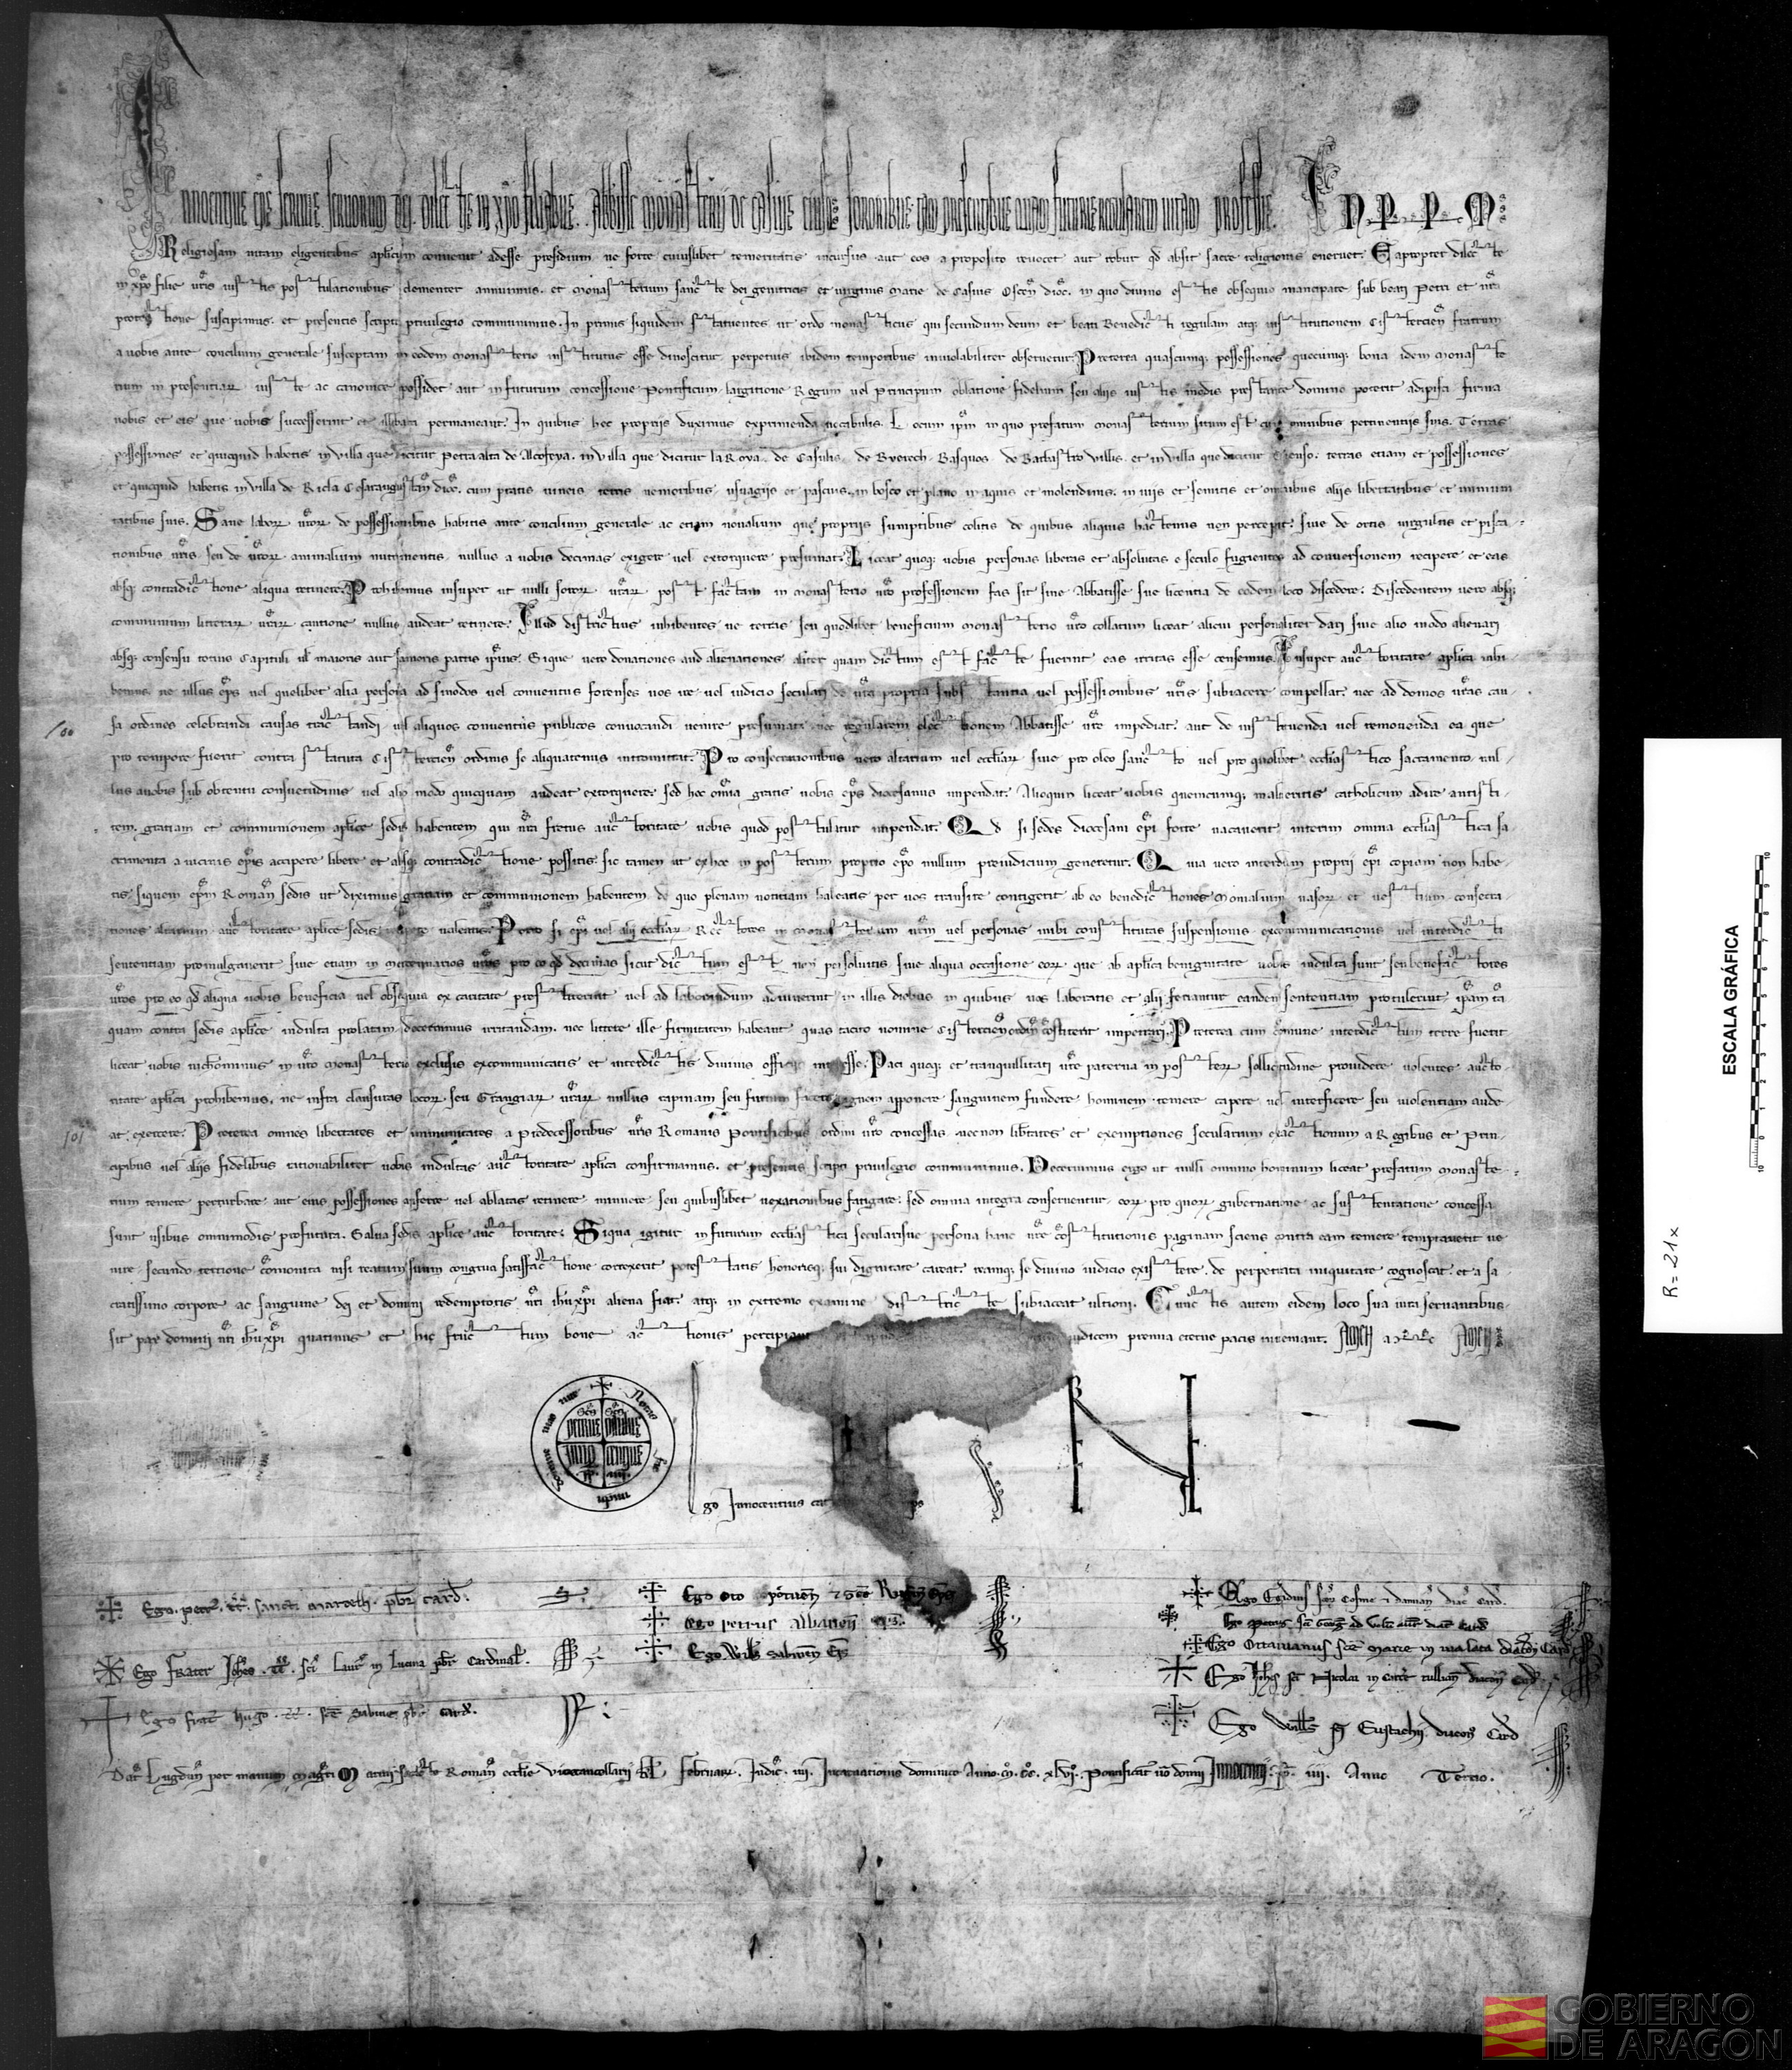 Innocentius eps servus servorum dei. Dilectis in xpo filiabus .. Abbatisse monasterii de Casuis eiusque sororibus tam presentibus quam futuris regularem vitam professis. IN PPM
Religiosam uitam eligentibus aplicum conuenit adesse presidium ne forte cuiuslibet temeritatis incursus aut eos a proposito reuocet aut robur qd absit sacre religionis eneruet. Eapropter dilecte
in xpo filie uris iustis postulationibus clementer annuimus. et monasterium sancte dei genitricis et uirginis Marie de Casuis Oscen dioc. in quo diuino estis obsequio mancipate sub beati Petri et nra
protectione suscipimus. et presentis scripti priuilegio communimus. In primis siquidem statuentes ut ordo monasticus qui secundum deum et beati Benedicti regulam atq; institutionem Cistercien fratrum
a uobis ante concilium generale susceptam in eodem monasterio institutus esse dinoscitur perpetuis ibidem temporibus inuiolabiliter obseruetur. Preterea quascumq; possessiones quecumq; bona idem monaste
rium in presentiarum iuste ac canonice possidet aut in futurum concessione Pontificum largitione Regum uel Principum oblatione fidelium seu aliis iustis modis prestante domino poterit adipisci firma
uobis et eis que uobis successerint et illibata permaneant. In quibus hec propriis duximus exprimenda uocabulis. Locum ipm in quo prefatum monasterium situm est cum omnibus pertinentiis suis. Terras
possessiones et quicquid habetis in uilla que dicitur Petra alta de Alcofeya. in uilla que dicitur la Roya. de Casulis de Bverech Basquos de Barbastro uillis. et in uilla que dicitur terras etiam et possessiones
et quicquid habetis in uilla de Ricla Cesaraugustan dioc. cum pratis uineis terris nemoribus usuagiis et pascuis. in bosco et plano in aquis et molendinis. in uiis et semitis et omnibus aliis libertatibus et immuni
tatibus suis. Sane laborum urorum de possessionibus habitis ante concilium generale ac etiam noualium que propriis sumptibus colitis de quibus aliquis hactenus non percepit. siue de ortis uirgultis et pisca-
tionibus uris. seu de urorum animalium nutrimentis. nullus a uobis decimas exigere uel extorquere presumat. Liceat quoq; uobis personas liberas et absolutas e seculo fugientes ad conuersionem recipere et eas
absq; contradictione aliqua retinere. Prohibemus insuper ut nulli sororum urarum post factam in monasterio uro professionem fas sit sine Abbatisse sue licentia de eodem loco discedere. Discedentem uero absq;
communium litterarum urarum cautione nullus audeat retinere. Illud districtius inhibentes ne terras seu quodlibet beneficium monasterio uro collatum liceat alicui personaliter dari siue alio modo alienari
absq; consensu totius Capituli uel maioris aut sanioris partis ipsius. Si que uero donationes aut alienationes aliter quam dictum est facte fuerint eas irritas esse censemus. Insuper auctoritate aplica inhi
bemus ne ullus eps uel quelibet alia persona ad sinodos uel conuentus forenses uos ire uel iudicio seculari de ura propria substantia uel possessionibus uris subiacere compellat. nec ad domos uras cau-
sa ordines celebrandi causas tractandi uel aliquos conuentus publicos conuocandi uenire presumat. nec regularem electionem Abbatisse ure impediat. aut de instituenda uel remouenda ea que
pro tempore fuerit contra statuta Cistercien ordinis se aliquatenus intromittat. Pro consecrationibus uero altarium uel ecclarum siue pro oleo sancto uel pro quolibet ecclastico sacramento nul-
lus a uobis sub obtentu consuetudinis uel alio modo quicquam audeat extorquere. sed hec omia gratis uobis eps diocesanus impendat. Alioquin liceat uobis quemcumq; malueritis catholicum adire antisti-
tem. gratiam et communionem aplice sedis habentem qui nra fretus auctoritate uobis quod postulatur impendat. Qd si sedes diocesani epi forte uacauerit interim omnia ecclastica sa
cramenta a uicinis epis accipere libere et absq; contradictione possitis. sic tamen ut ex hoc in posterum proprio epo nullum preiudicium generetur. Quia uero interdum proprii epi copiam non habe
tis. siquem epm Roman sedis ut diximus gratiam et communionem habentem de quo plenam notitiam habeatis per uos transire contigerit ab eo benedictiones Monialium uasorum et uestium consecra
tiones altarium auctoritate aplice sedis recipere ualeatis. Porro si epi uel alii ecclarum Rectores in monasterium urm uel personas inibi constitutas suspensionis excommunicationis uel interdicti
sententiam promulgauerint siue etiam in mercennarios uros pro eo qd decimas sicut dictum est non persoluitis. siue aliqua occasione eorum que ab aplica benignitate uobis indulta sunt seu benefactores
uros pro eo qd aliqua uobis beneficia uel obsequia ex caritate prestiterint uel ad laborandum adiuuerint in illis diebus in quibus uos laboratis et alii feriantur eandem sententiam protulerint ipam ta
quam contra sedis aplice indulta prolatam decernimus irritandam. nec littere ille firmitatem habeant quas tacito nomine Cistercien ordin constiterit impetrari. Preterea cum comune interdictum terre fuerit
liceat uobis nichominus in uro monasterio exclusis excommunicatis et interdictis diuina officia interesse. Paci quoq; et tranquillitati ure paterna in posterum sollicitudine prouidere uolentes. aucto
ritate aplica prohibemus. ne infra clausuras locorum seu Grangiarum urarum nullus rapinam seu furtum facere ignem apponere sanguinem fundere hominem temere capere uel interficere seu uiolentiam aude
at exercere. Preterea omnes libertates et immunitates a Predecessoribus nris Romanis Pontificibus ordini uro concessas necnon libertates et exemptiones secularium exactionum a Regibus et Prin-
cipibus uel aliis fidelibus rationabiliter uobis indultas auctoritate aplica confirmamus. et presentis scripti priuilegio communimus. Decernimus ergo ut nulli omnino hominum liceat prefatum monaste-
rium temere perturbare aut eius possessiones auferre uel ablatas retinere minuere seu quibuslibet uexationibus fatigare. sed omnia integra conseruentur eorum pro quorum gubernatione ac sustentatione concessa
sunt usibus omnimodis profutura. Salua sedis aplice auctoritate. Siqua igitur in futurum ecclastica secularisue persona hanc nre costitutionis paginam sciens contra eam temere temptauerit ue
nire. secundo tertioue comonita nisi reatum suum congrua satisfactione correxerit potestatis honorisq; sui dignitate careat. reamq; se diuino iudicio existere de perpetrata iniquitate cognoscat. et a sa
cratissimo corpore ac sanguine dei et domini redemptoris nri ihu xpi aliena fiat. atq; in extremo examine districte subiaceat ultioni. Cunctis autem eidem loco sua iura seruantibus
sit pax domini nri ihu xpi quatinus et hic fructum bone actionis percipiant iudicem premia eterne pacis inueniant. Amen amen Amen
Scs Petrus Scs Paulus Innocentius pp iiii
Ego Innocentius cat ps
Ego Petr tt sanct Marcelli pbr card.
Ego frater Johes tt sci Laur in Lucina pbr Cardinal.
Ego frat Hugo tt sce Sabine pbr card.
Ego Oto Portuen et sce Rufin eps
Ego Petrus Albanen eps
Ego Wills Sabinen Eps
Ego Egidius scor Cosme et damian diac card.
Ego Octauianus sce Marie in uia lata diacon Card
Ego Johs sci Nicolai in carce tullian diacon card
Ego Wills sci Eustachii diacon Card
Dat Lugdun per manum magri Marini sacte Roman ecclie Vicecancellarii kl Februar. Indict. iiii. Incarnationis dominice Anno. M. CC. xlv. Pontificat uo domni Innocentii pp. iiii. Anno Tertio.
100
101
ESCALA GRÁFICA
10 9 8 7 6 5 4 3 2 1 0 10
R= 21x
GOBIERNO
DE ARAGON